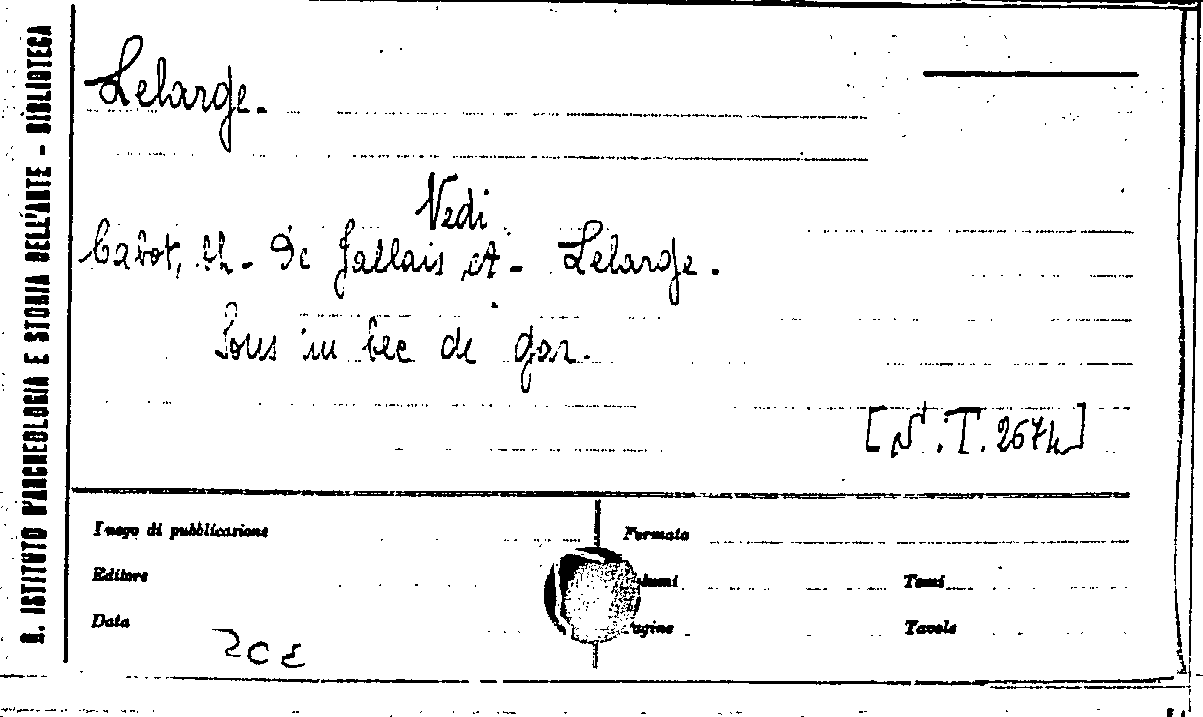 R. ISTITUTO D'ARCHEOLOGIA E STORIA DELL'ARTE - BIBLIOTECA
Lelarge.
Vedi
Cabot, Ch - De Jallais, A - Lelarge.
Sous un bec de gaz.
[N. T. 2674]
Luogo di pubblicazione
Formato
Editore
Volumi
Tomi
Data
Pagine
Tavole